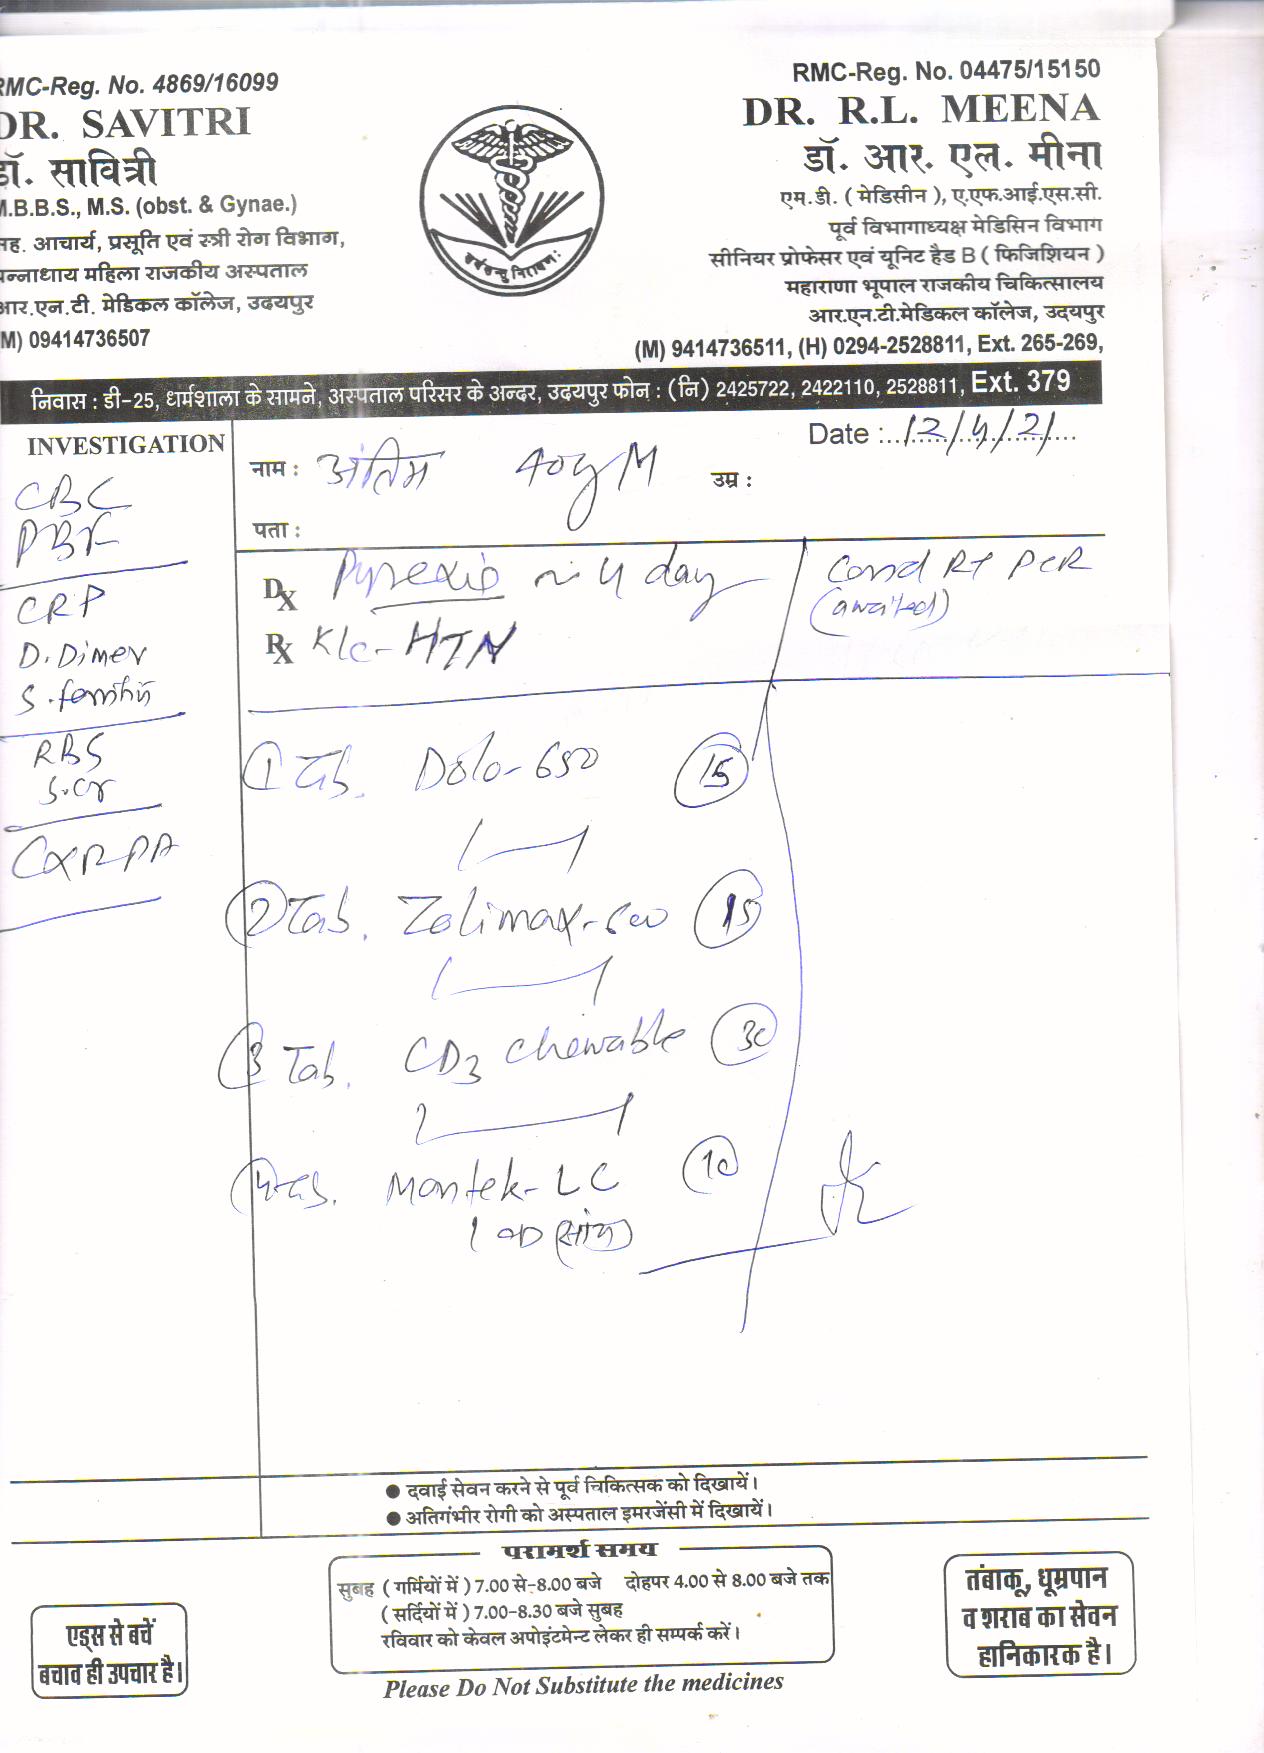 RMC-Reg. No. 4869/16099
DR. SAVITRI
डॉ. सावित्री
M.B.B.S., M.S. (obst. & Gynae.)
सह. आचार्य, प्रसूति एवं स्त्री रोग विभाग,
पन्नाधाय महिला राजकीय अस्पताल
आर.एन.टी. मेडिकल कॉलेज, उदयपुर
(M) 09414736507
RMC-Reg. No. 04475/15150
DR. R.L. MEENA
डॉ. आर. एल. मीना
एम.डी. ( मेडिसीन ), ए.एफ.आई.एस.सी.
पूर्व विभागाध्यक्ष मेडिसिन विभाग
सीनियर प्रोफेसर एवं यूनिट हैड B ( फिजिशियन )
महाराणा भूपाल राजकीय चिकित्सालय
आर.एन.टी.मेडिकल कॉलेज, उदयपुर
(M) 9414736511, (H) 0294-2528811, Ext. 265-269,
सर्वेसन्तु निरामयाः
निवास : डी-25, धर्मशाला के सामने, अस्पताल परिसर के अन्दर, उदयपुर फोन : (नि) 2425722, 2422110, 2528811, Ext. 379
INVESTIGATION
CBC
PBF
CRP
D. Dimer
S. ferritin
RBS
S. Cr
CXR PA
Date : 12/4/21
नाम : अंतिम 40y M उम्र :
पता :
Dx Pyrexia ~ 4 day
Rx K/c- HTN
Covid RT PCR
(awaited)
① Tab. Dolo-650 15
② Tab. Zolimax-600 15
③ Tab. CD3 chewable 30
④ Tab. Montek-LC 10
1 OD (सांय)
● दवाई सेवन करने से पूर्व चिकित्सक को दिखायें।
● अतिगंभीर रोगी को अस्पताल इमरजेंसी में दिखायें।
परामर्श समय
सुबह ( गर्मियों में ) 7.00 से-8.00 बजे दोहपर 4.00 से 8.00 बजे तक
( सर्दियों में ) 7.00-8.30 बजे सुबह
रविवार को केवल अपोइंटमेन्ट लेकर ही सम्पर्क करें।
Please Do Not Substitute the medicines
एड्स से बचें
बचाव ही उपचार है।
तंबाकू, धूम्रपान
व शराब का सेवन
हानिकारक है।